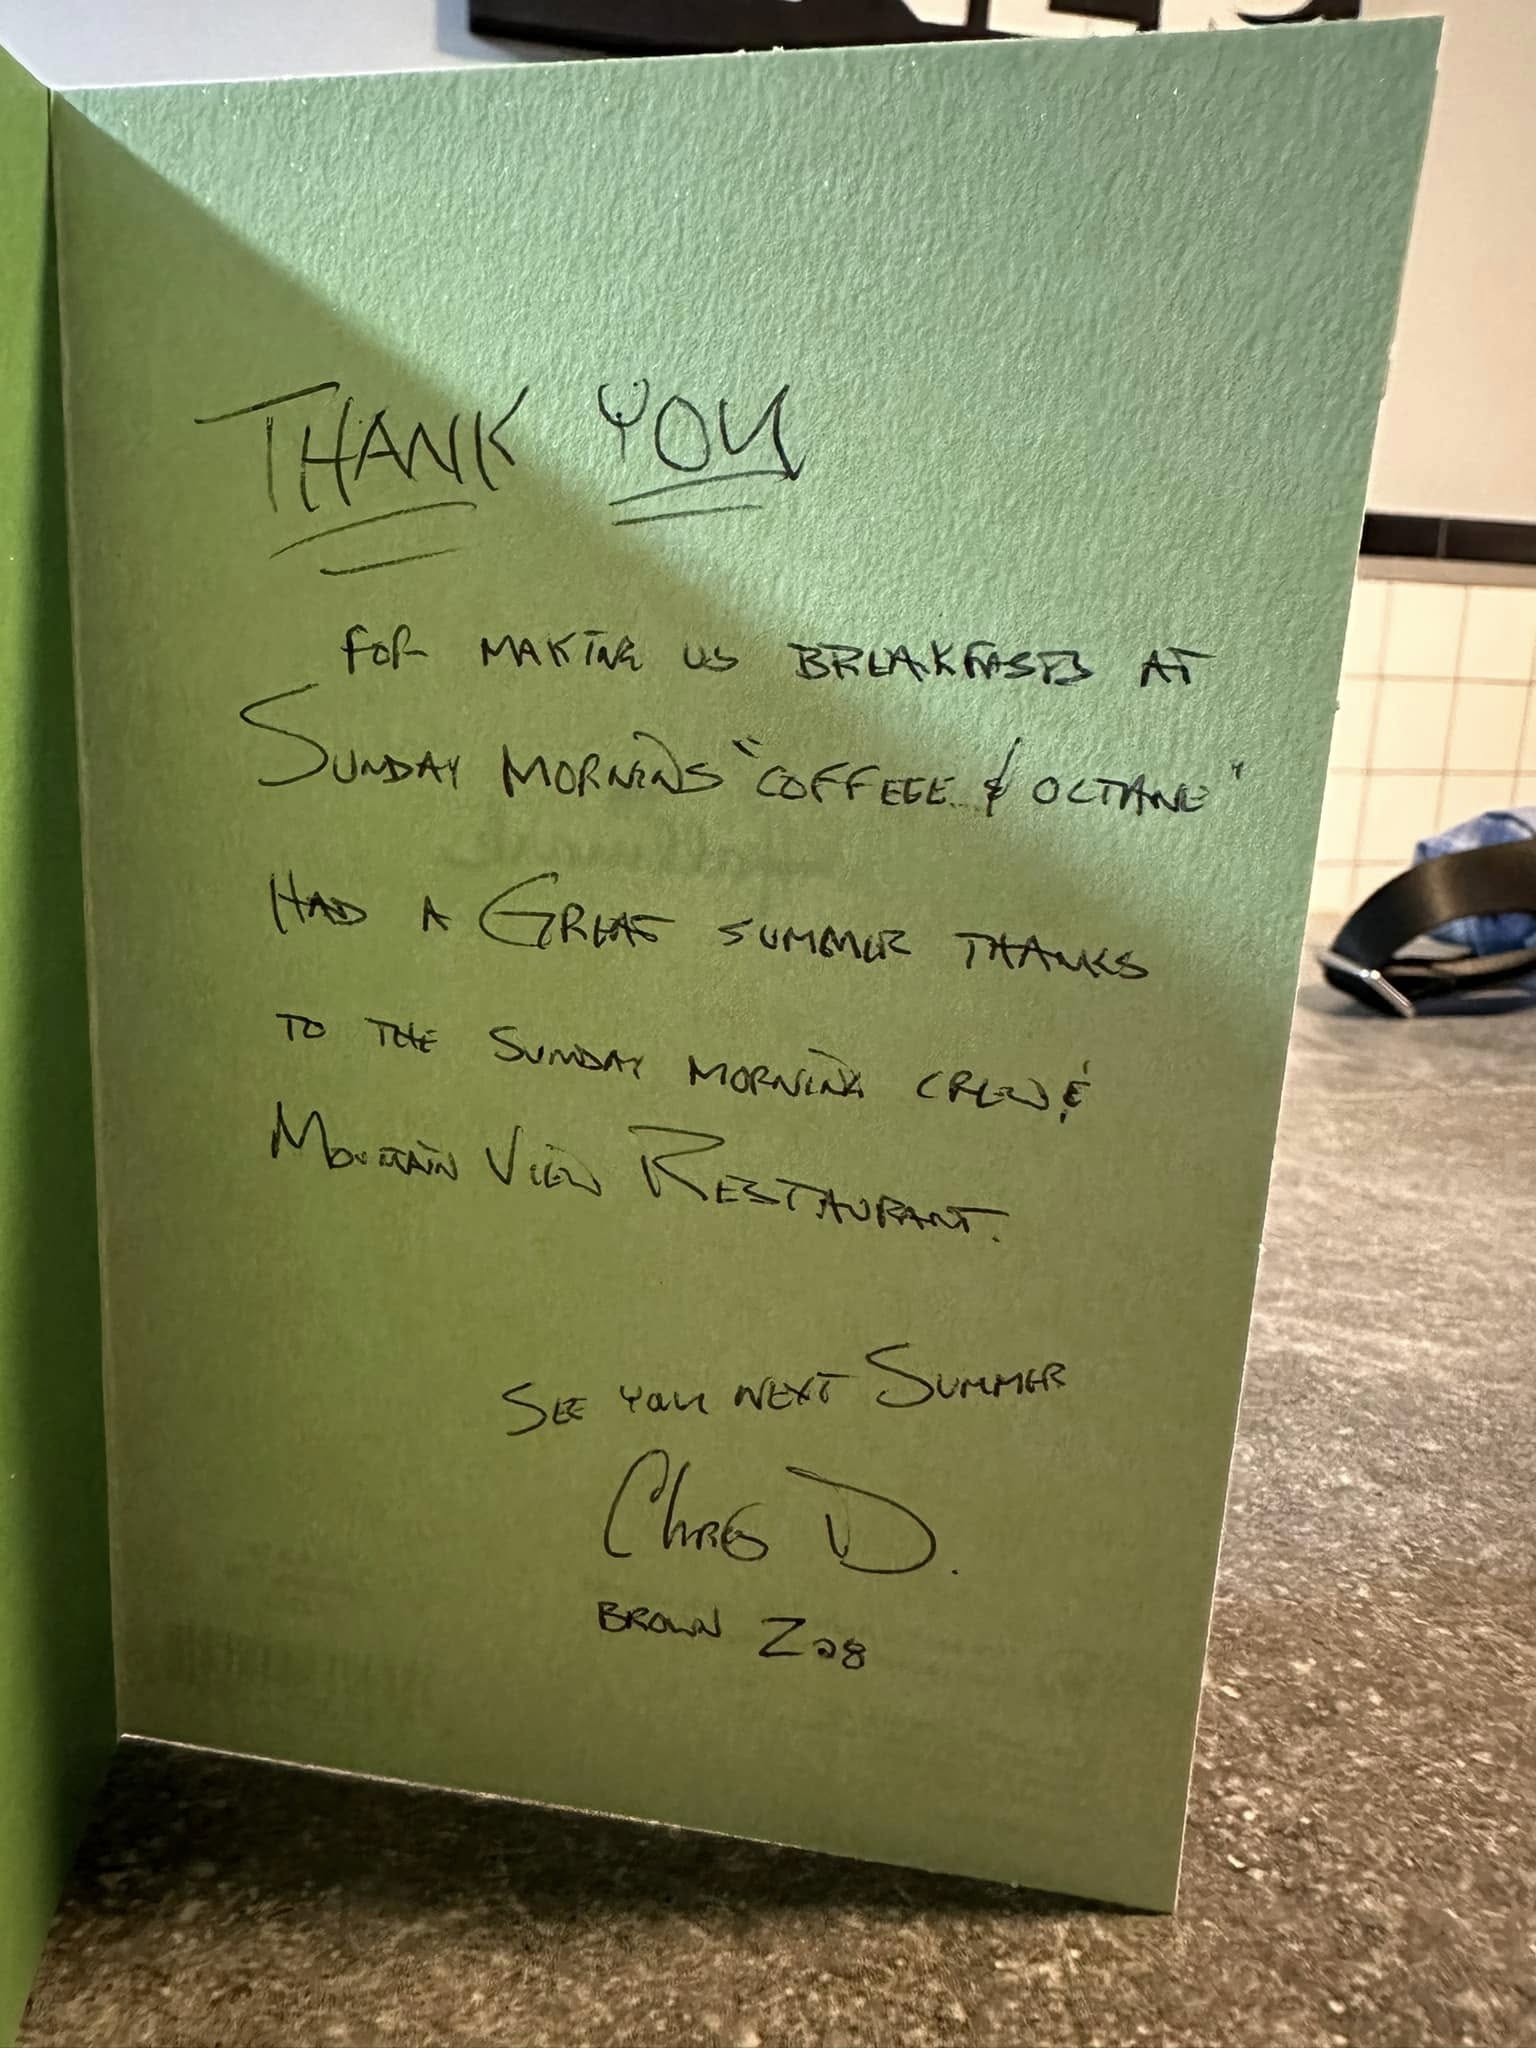 THANK YOU
FOR MAKING US BREAKFASTS AT
SUNDAY MORNING "COFFEEE & OCTANE"
HAD A GREAT SUMMER THANKS
TO THE SUNDAY MORNING CREW &
MOUNTAIN VIEW RESTAURANT.
SEE YOU NEXT SUMMER
CHRIS D.
BROWN Z28